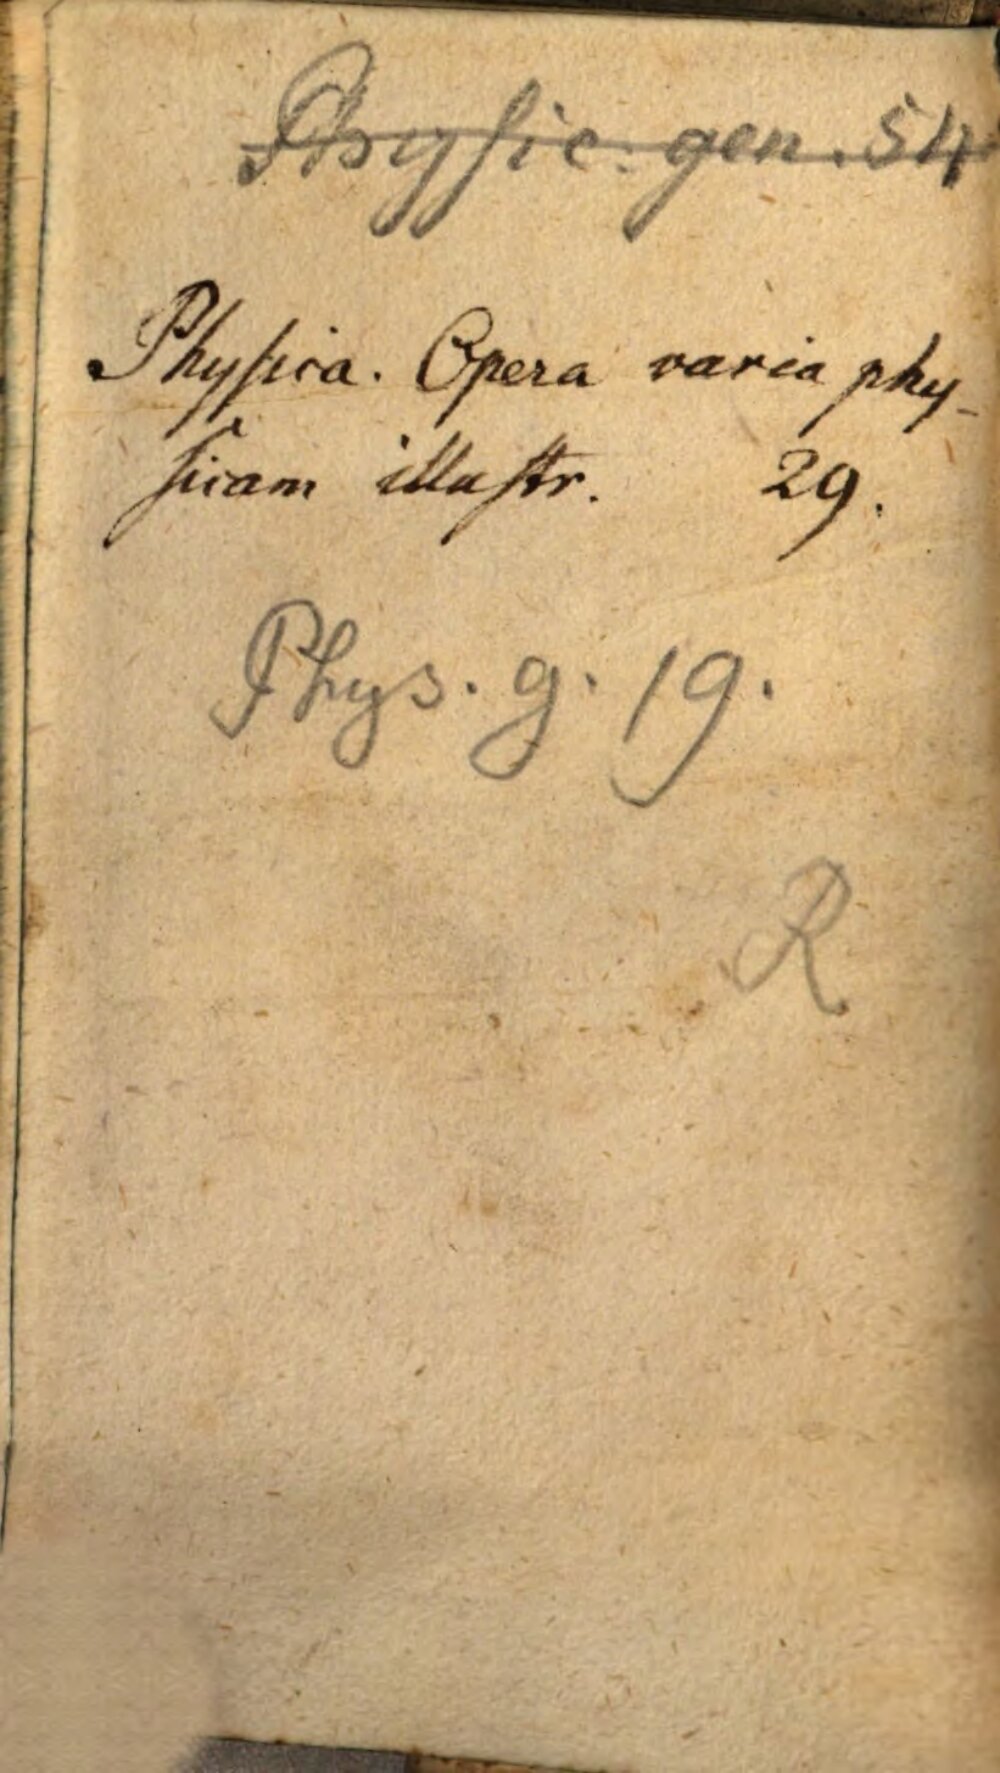 Phyſic. gen. 54
Phyſica. Opera varia phy-
ſicam illuſtr. 29.
Phys. g. 19.
R